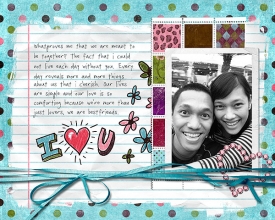 whatproves me that we are meant to
be together? The fact that i could
not live each day without you. Every
day reveals more and more things
about us that i cherish. Our lives
are simple and our love is so
comforting because we're more than
just lovers, we are bestfriends.
I U